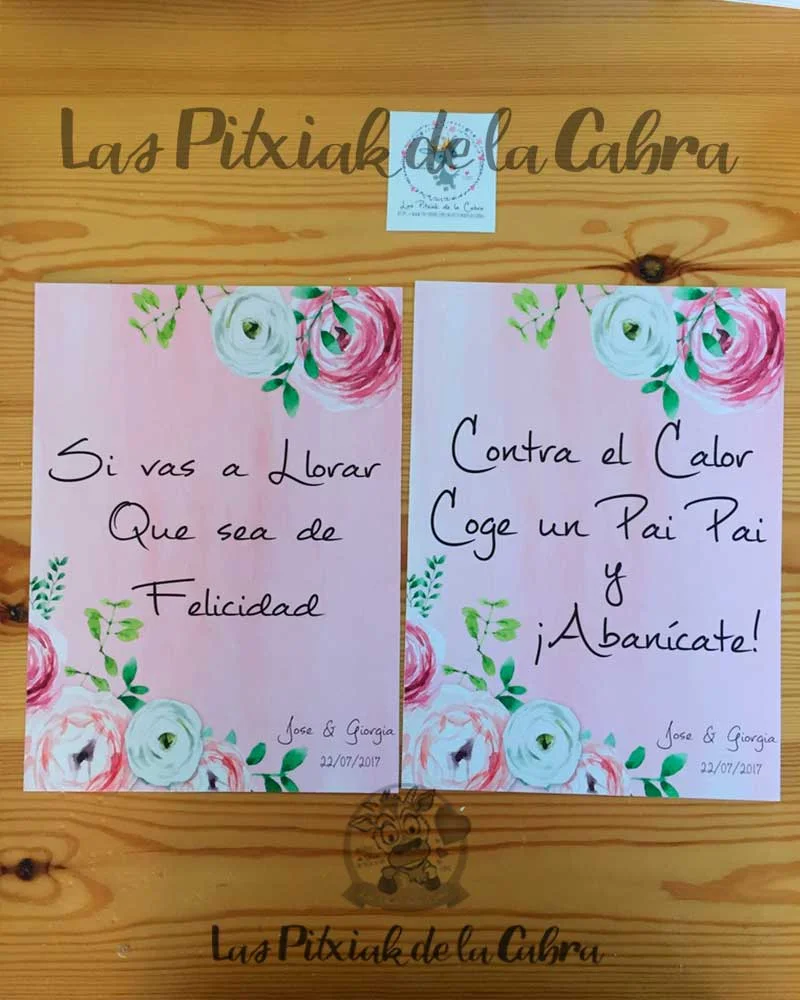 Las Pitxiak de la Cabra
Las Pitxiak de la Cabra
Si vas a Llorar
Que sea de
Felicidad
Jose & Giorgia
22/07/2017
Contra el Calor
Coge un Pai Pai
y
¡Abanícate!
Jose & Giorgia
22/07/2017
Las Pitxiak de la Cabra